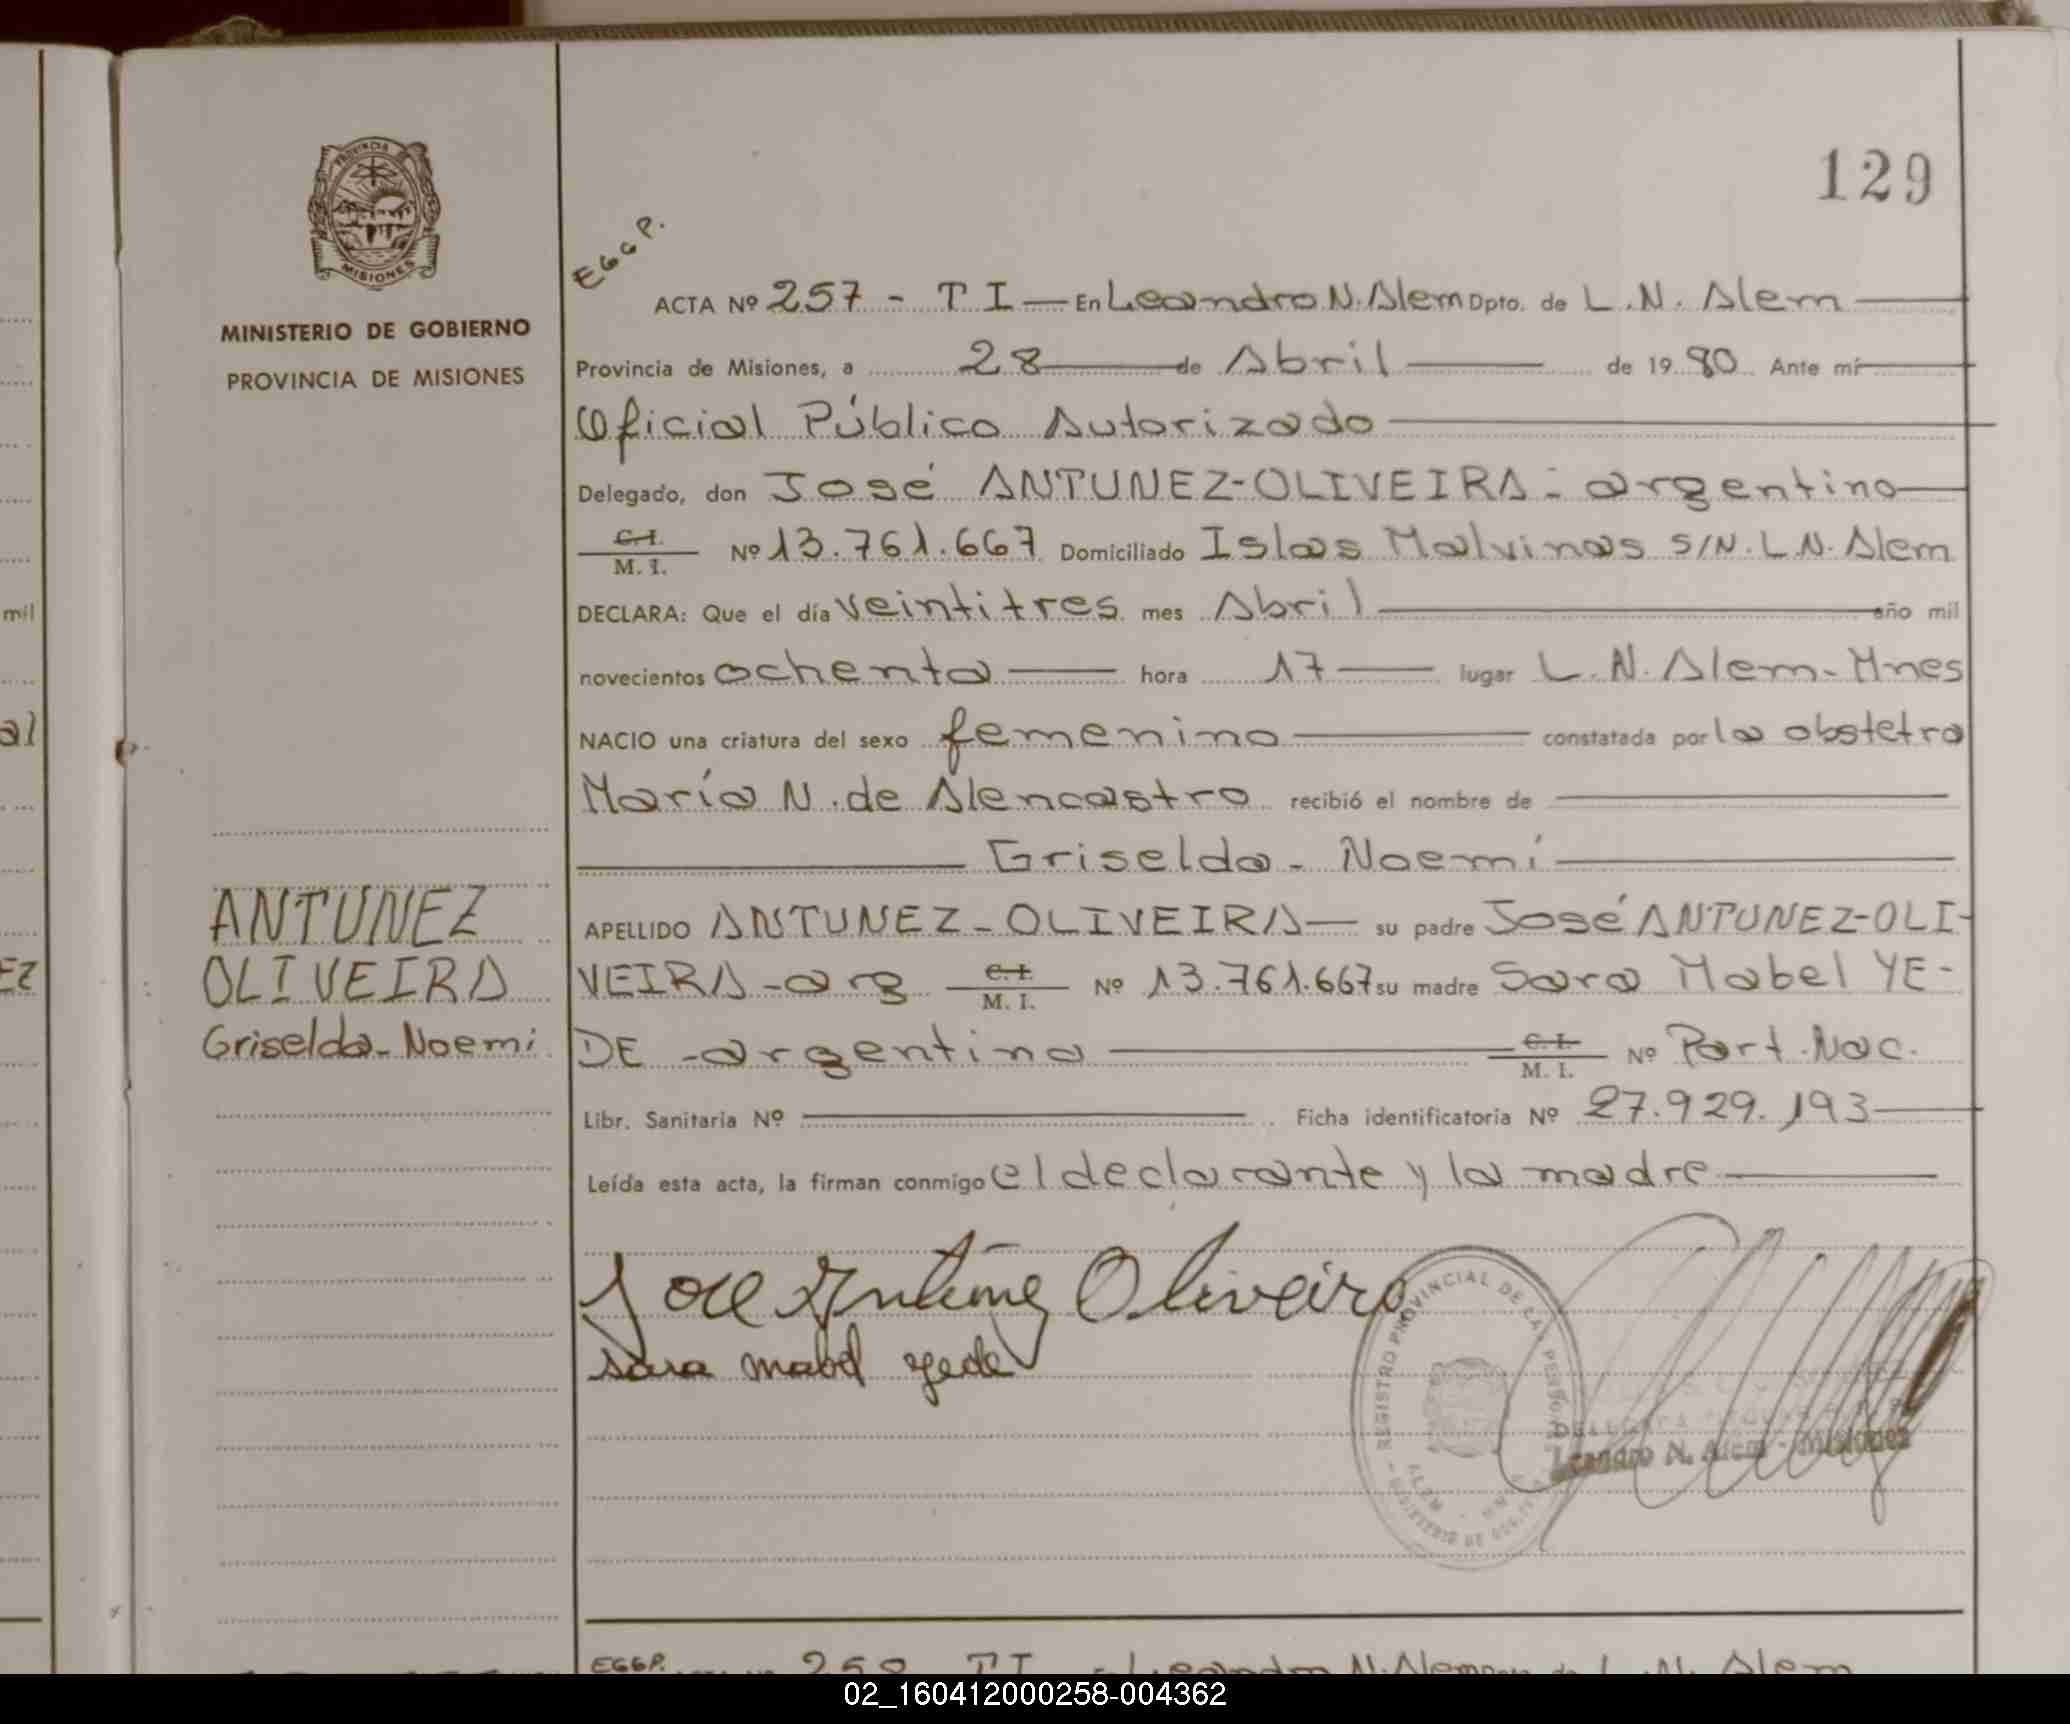 PROVINCIA
MISIONES
MINISTERIO DE GOBIERNO
PROVINCIA DE MISIONES
129
EGGP.
ACTA Nº 257 - T I — En Leandro N. Alem Dpto. de L. N. Alem
Provincia de Misiones, a 28 de Abril de 1980 Ante mí
Oficial Público Autorizado
Delegado, don José ANTUNEZ-OLIVEIRA - argentino
C. I.
M. I. Nº 13.761.667 Domiciliado Islas Malvinas S/N. L. N. Alem
DECLARA: Que el día veintitres mes Abril año mil
novecientos ochenta hora 17 lugar L. N. Alem - Mnes
NACIO una criatura del sexo femenino constatada por la obstetra
María N. de Alencastro recibió el nombre de
Griselda - Noemí
APELLIDO ANTUNEZ - OLIVEIRA su padre José ANTUNEZ-OLI-
VEIRA - arg C. I. M. I. Nº 13.761.667 su madre Sara Mabel YE-
DE - argentina C. I. M. I. Nº Part. Nac.
Libr. Sanitaria Nº Ficha identificatoria Nº 27.929.193
Leída esta acta, la firman conmigo el declarante y la madre
ANTUNEZ
OLIVEIRA
Griselda - Noemi
Jose Antunez Oliveira
sara mabel yede
REGISTRO PROVINCIAL DE LAS PERSONAS
ALEM
Leandro N. Alem - Misiones
mil
al
EZ
EGGP. 258 T I Leandro N. Alem L. N. Alem
02_160412000258-004362